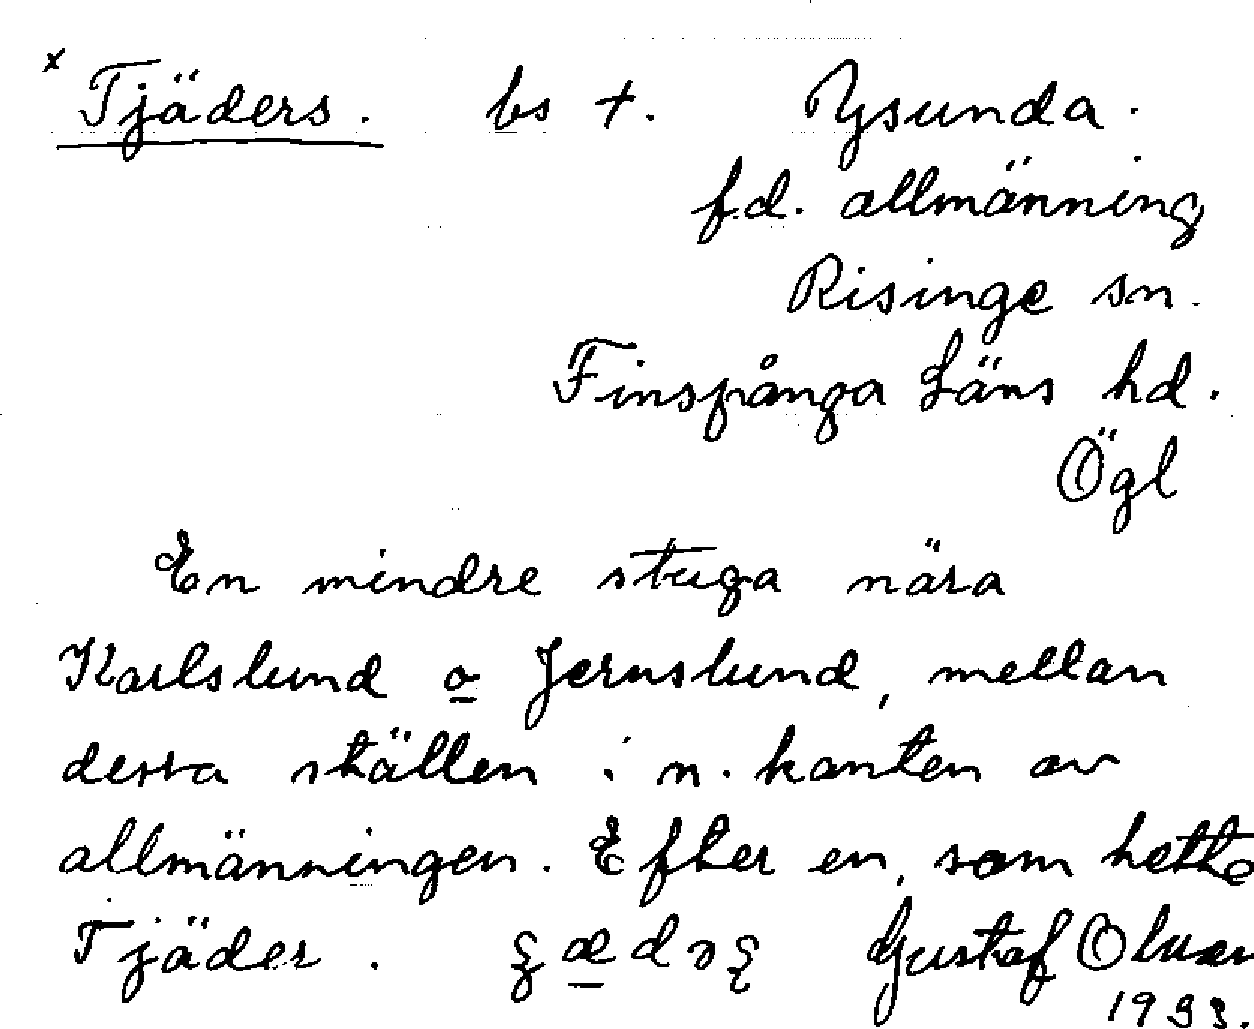 x Tjäders. bs +. Ysunda.
f.d. allmänning
Risinge sn.
Finspånga Läns hd.
Ögl
En mindre stuga nära
Karlslund o Jernslund, mellan
dessa ställen i n. kanten av
allmänningen. Efter en, som hette
Tjäder. Gustaf
1933.